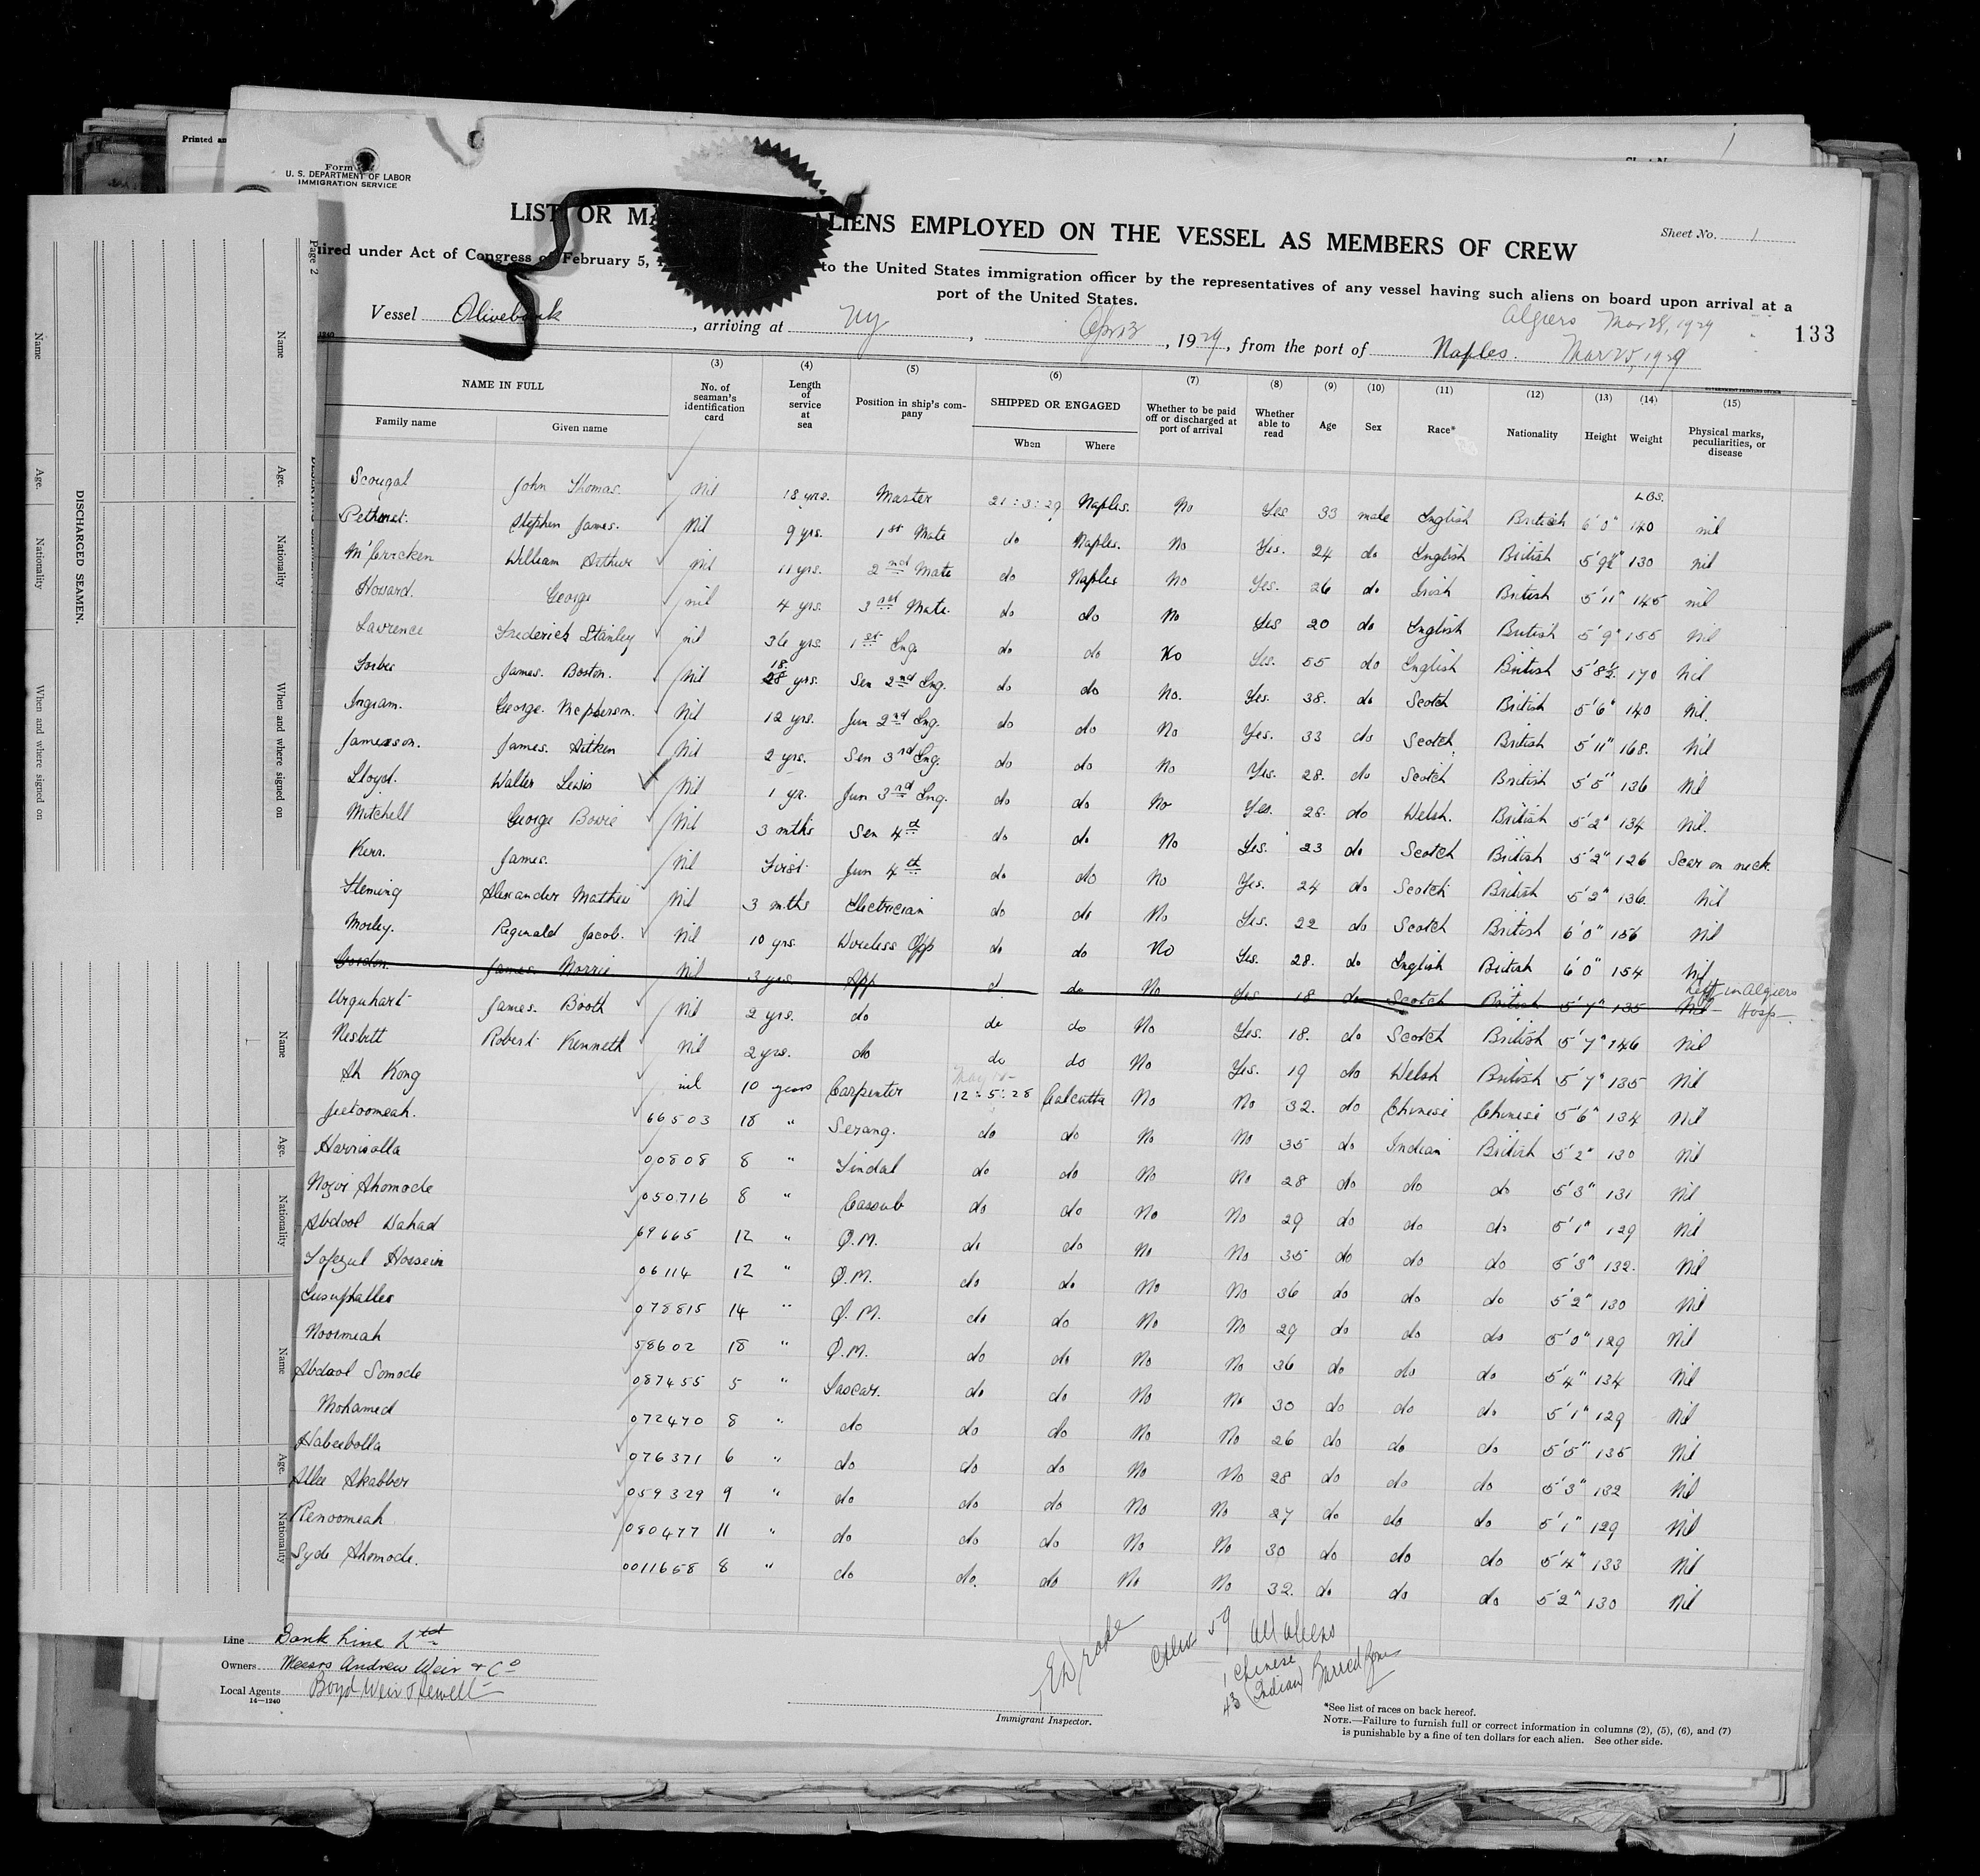 Printed an
Form
U. S. DEPARTMENT OF LABOR
IMMIGRATION SERVICE
LIST OR MA ALIENS EMPLOYED ON THE VESSEL AS MEMBERS OF CREW
Sheet No. 1
ired under Act of Congress of February 5, 1 to the United States immigration officer by the representatives of any vessel having such aliens on board upon arrival at a
port of the United States.
Algiers Mar 28, 1929
Vessel Olivebank, arriving at NY, Apr 13, 1929, from the port of Naples. Mar 25, 1929
133
NAME IN FULL
Family name Given name
(3) No. of seaman's identification card
(4) Length of service at sea
(5) Position in ship's company
(6) SHIPPED OR ENGAGED When Where
(7) Whether to be paid off or discharged at port of arrival
(8) Whether able to read
(9) Age
(10) Sex
(11) Race*
(12) Nationality
(13) Height
(14) Weight
(15) Physical marks, peculiarities, or disease
LBS.
Scougal John Thomas. Nil 18 yrs. Master 21:3:29 Naples. No Yes 33 male English British 6'0" 140 nil
Pethurst. Stephen James. Nil 9 yrs. 1st Mate do Naples. No Yes. 24 do English British 5'9½" 130 nil
William Arthur nil 11 yrs. 2nd Mate do Naples No Yes. 26 do Irish British 5'11" 145 nil
Howard. George nil 4 yrs. 3rd Mate. do do No Yes 20 do English British 5'9" 155 Nil
Lawrence Frederick Stanley nil 36 yrs. 1st Eng. do do No Yes. 55 do English British 5'8½ 170 Nil
Forbes James. Boston. Nil 18 28 yrs. Sen 2nd Eng. do do No. Yes. 38. do Scotch British 5'6" 140 Nil.
Ingram. George. Mcpherson. Nil 12 yrs. Jun 2nd Eng. do do No Yes. 33 do Scotch. British 5'11" 168. Nil
Jameson. James. Aitken Nil 2 yrs. Sen 3rd Eng. do do No Yes. 28. do Scotch British 5'5" 136 Nil
Lloyd. Walter Lewis Nil 1 yr. Jun 3rd Eng. do do No Yes. 28. do Welsh. British 5'2" 134 Nil.
Mitchell George Bowie Nil 3 mths Sen 4th do do No Yes. 23 do Scotch British 5'2" 126 Scar on neck.
Kerr. James. Nil First Jun 4th do do No Yes. 24 do Scotch British 5'2" 136. Nil
Fleming Alexander Mathew Nil 3 mths Electrician do do No Yes. 22 do Scotch British 6'0" 156 Nil
Morley. Reginald Jacob. Nil 10 yrs. Wireless Opp do do No Yes. 28. do English British 6'0" 154 Nil
Gordon. James Norrie Nil 3 yrs. App d. do No Yes 18 do Scotch British 5'7" 135 Nil Left in Algiers Hosp
Urquhart James. Booth Nil 2 yrs. do do do No Yes. 18. do Scotch British 5'7" 146 Nil
Nesbitt Robert Kenneth Nil 2 yrs. do do do No Yes. 19 do Welsh British 5'7" 135 Nil
Ah Kong nil 10 years Carpenter 12:5:28 Calcutta No No 32. do Chinese Chinese 5'6" 134 Nil
Jeetoomeah. 66503 18 " Serang. do do No No 35 do Indian British 5'2" 130 Nil
Harrisolla 00808 8 " Tindal do do No No 28 do do do 5'3" 131 Nil
Nozir Ahomode 050716 8 " Cassub do do No No 29 do do do 5'1" 129 Nil
Abdool Wahad 69665 12 " Q.M. do do No No 35 do do do 5'3" 132. Nil
Tofezul Hossein 06114 12 " Q.M. do do No No 36 do do do 5'2" 130 Nil
078815 14 " Q.M. do do No No 29 do do do 5'0" 129 Nil
Noormeah 58602 18 " Q.M. do do No No 36 do do do 5'4" 134 Nil
Abdool Somode 087455 5 " Lascar. do do No No 30 do do do 5'1" 129 Nil
Mohamed 072470 8 " do do do No No 26 do do do 5'5" 135 Nil
Habeebolla 076371 6 " do do do No No 28 do do do 5'3" 132 Nil
Allee Akabber 059329 9 " do do do No No 27 do do do 5'1" 129 Nil
Renoomeah 080477 11 " do do do No No 30 do do do 5'4" 133 Nil
Syde Ahomode. 0011658 8 " do do. do No No 32. do do do 5'2" 130 Nil
Line Bank Line Ltd
Owners Messrs Andrew Weir & Co
Local Agents Boyd Weir & Sewell
14—1240
Immigrant Inspector.
Crew 59 All aliens
1 Chinese
43 (Indian) Barred Zone
*See list of races on back hereof.
NOTE.—Failure to furnish full or correct information in columns (2), (5), (6), and (7)
is punishable by a fine of ten dollars for each alien. See other side.
Page 2
DISCHARGED SEAMEN.
Name Age. Nationality When and where signed on
Name Age. Nationality When and where signed on
Name Age. Nationality
Name Age. Nationality